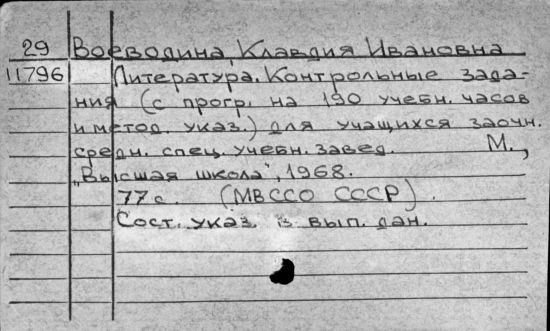 29 Воеводина, Клавдия Ивановна
11796 Литература. Контрольные зада-
ния (с прогр. на 190 учебн. часов
и метод. указ.) для учащихся заочн.
средн. спец. учебн. завед. М.,
„Высшая школа", 1968.
77 с. (МВССО СССР).
Сост. указ. в вып. дан.